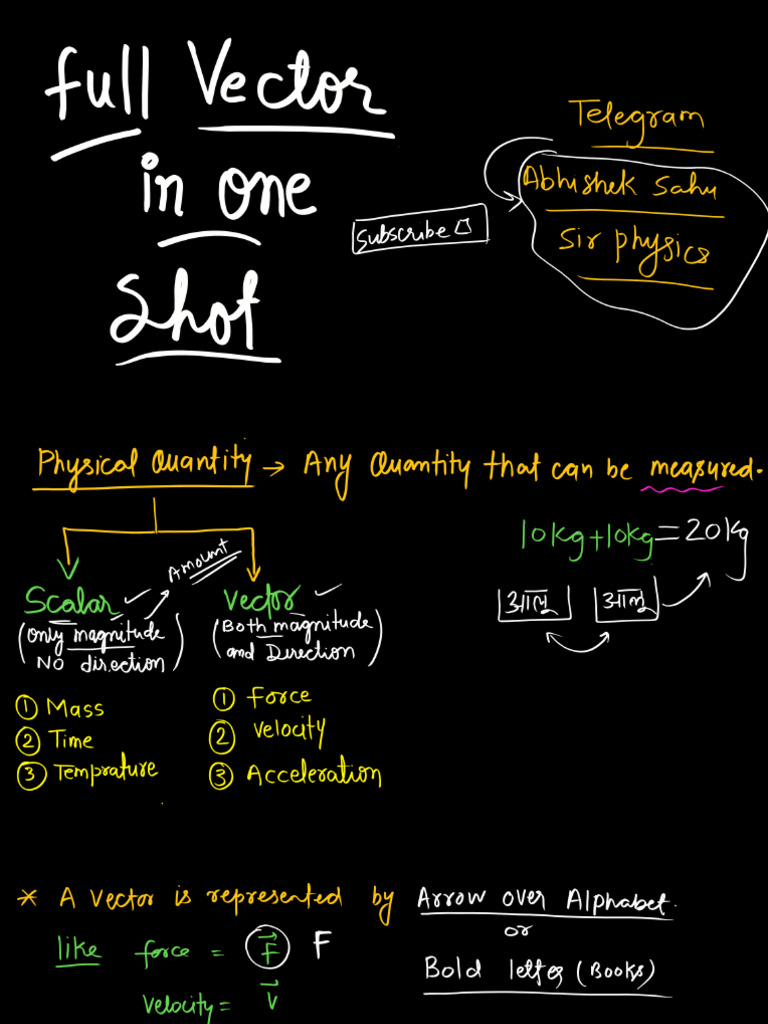 Full Vector
in one
Shot
Telegram
Abhishek Sahu
Sir physics
Subscribe
Physical Quantity → Any Quantity that can be measured.
10kg+10kg=20kg
आलू आलू
Amount
Scalar
(only magnitude
NO direction)
Vector
(Both magnitude
and Direction)
① Mass
② Time
③ Temprature
① Force
② Velocity
③ Acceleration
* A Vector is represented by Arrow over Alphabet.
or
Bold letter (Books)
like force = F⃗ F
Velocity = V⃗